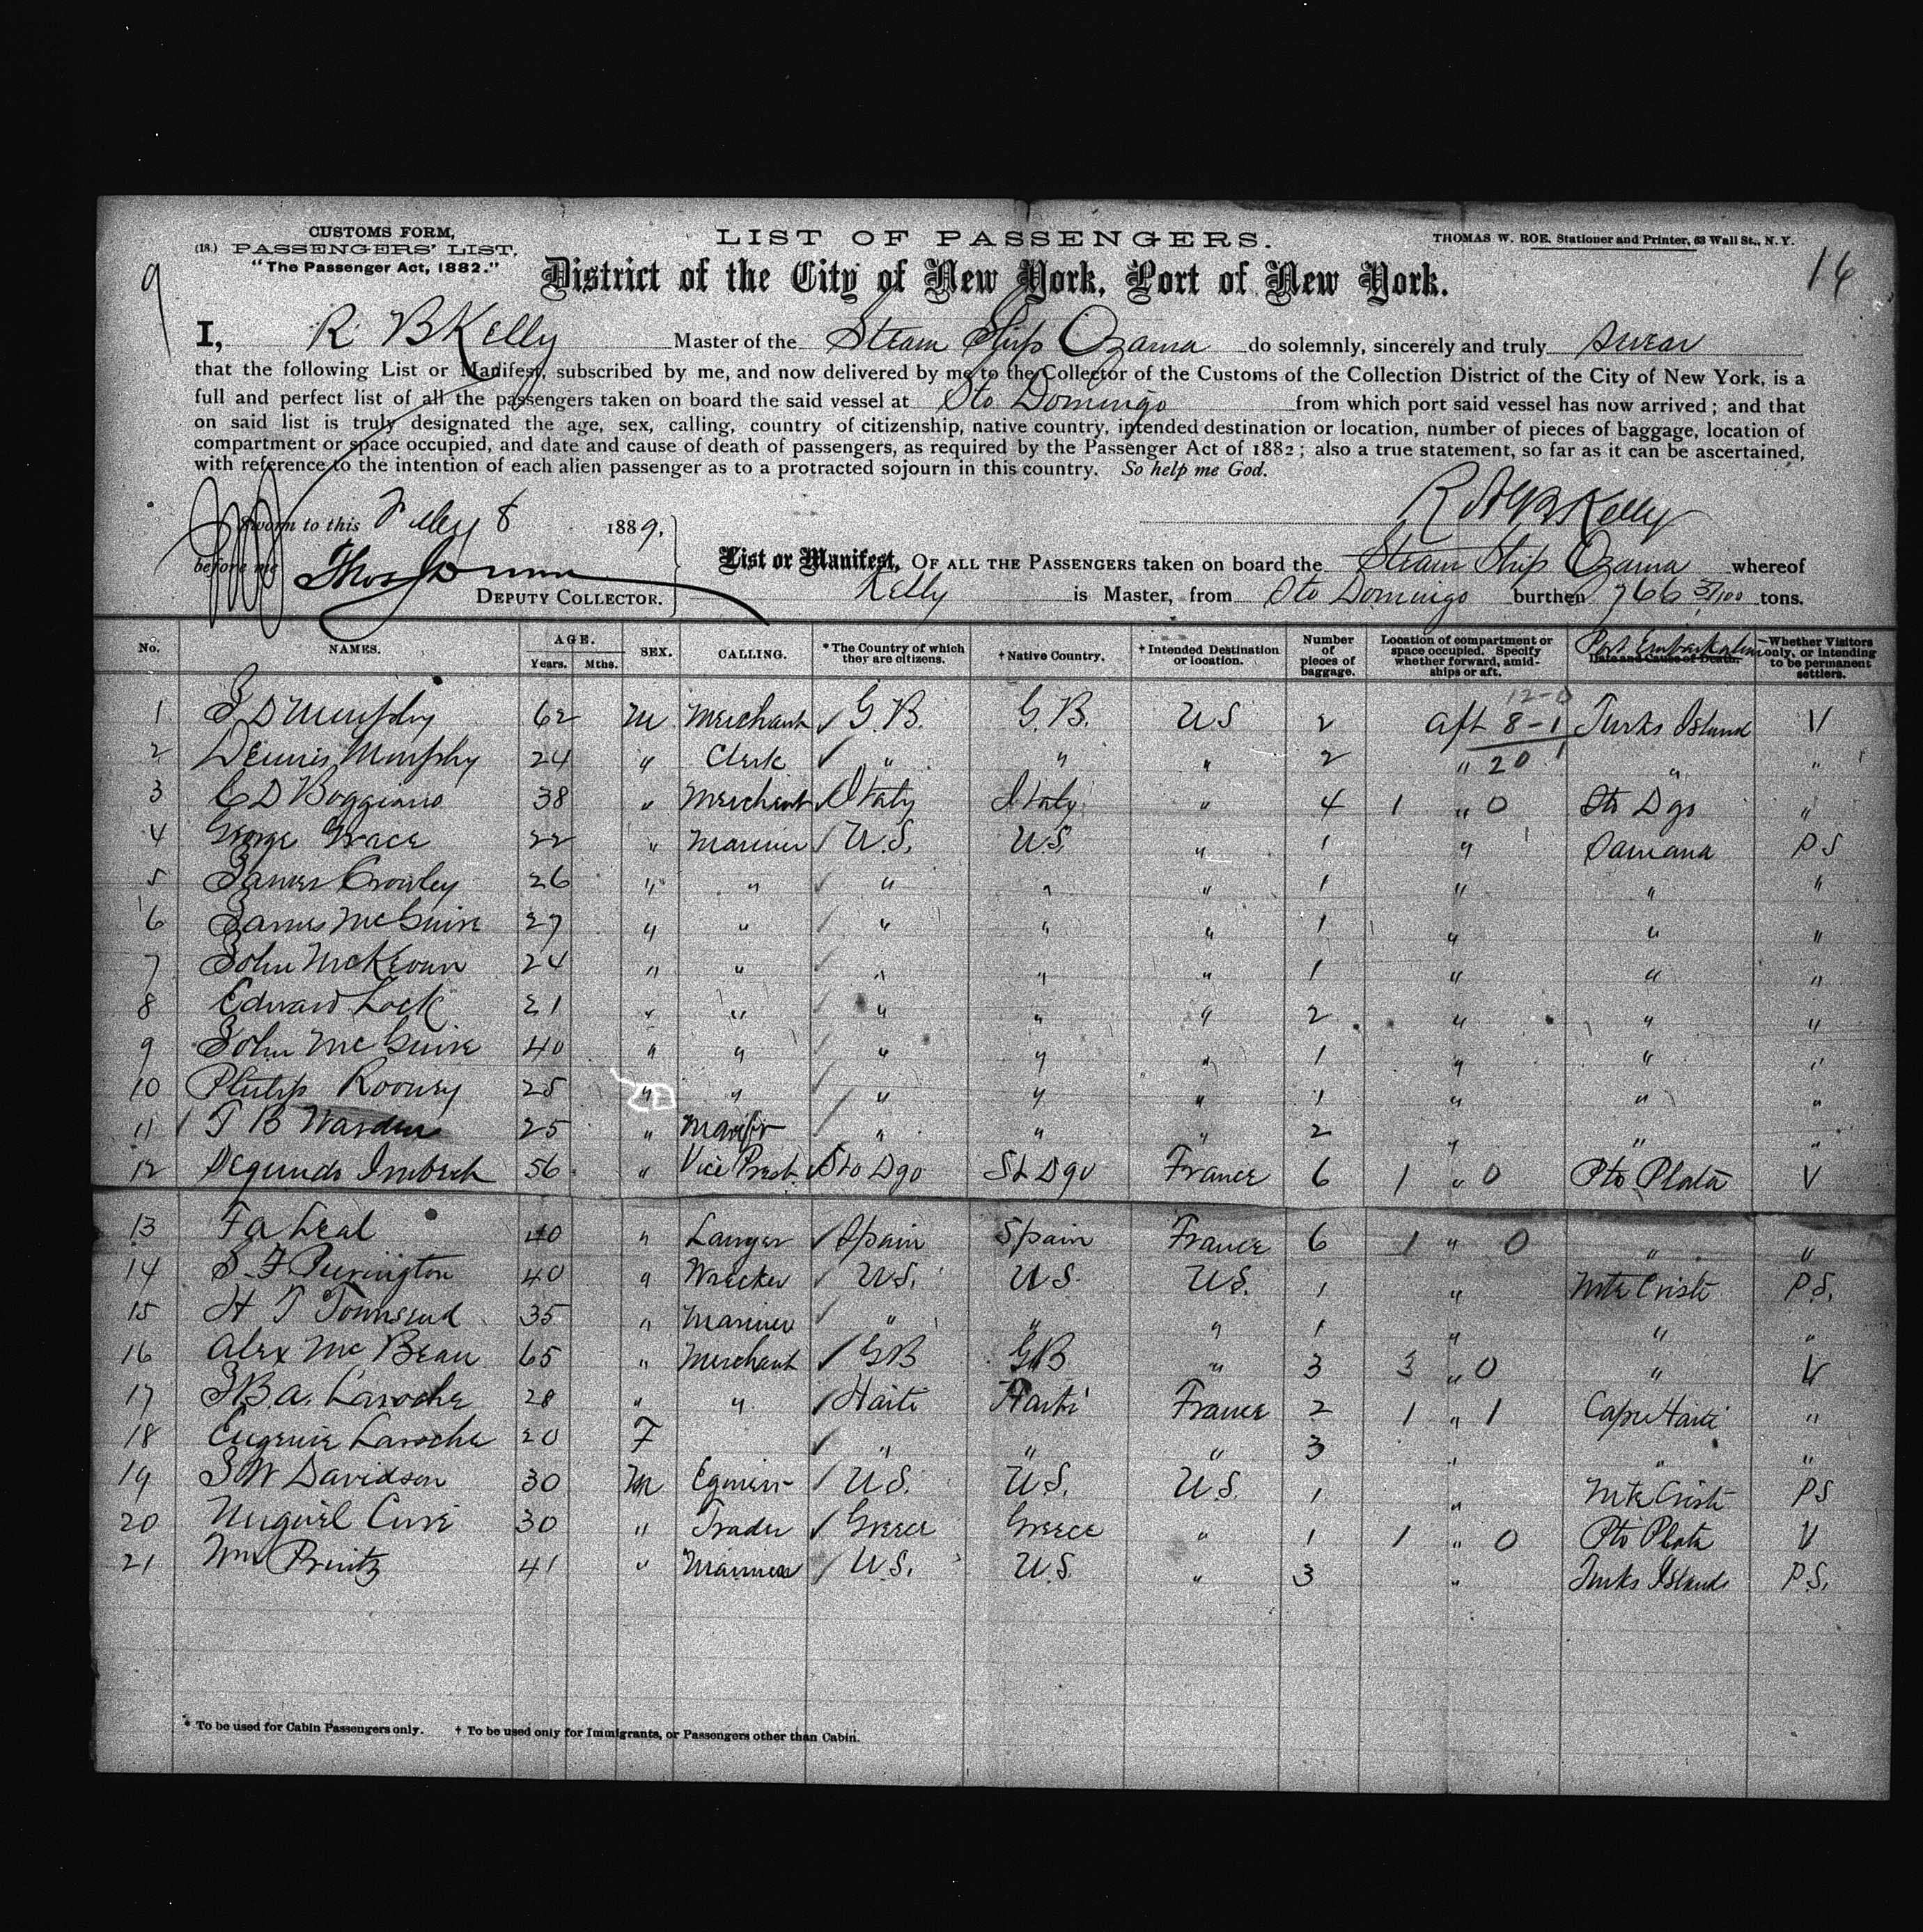 CUSTOMS FORM,
(18.) PASSENGERS' LIST,
"The Passenger Act, 1882."
LIST OF PASSENGERS.
THOMAS W. ROE, Stationer and Printer, 63 Wall St., N. Y.
9
14
District of the City of New York, Port of New York.
I, R B Kelly Master of the Steam Ship Ozama do solemnly, sincerely and truly swear
that the following List or Manifest, subscribed by me, and now delivered by me to the Collector of the Customs of the Collection District of the City of New York, is a
full and perfect list of all the passengers taken on board the said vessel at Sto Domingo from which port said vessel has now arrived; and that
on said list is truly designated the age, sex, calling, country of citizenship, native country, intended destination or location, number of pieces of baggage, location of
compartment or space occupied, and date and cause of death of passengers, as required by the Passenger Act of 1882; also a true statement, so far as it can be ascertained,
with reference to the intention of each alien passenger as to a protracted sojourn in this country. So help me God.
Sworn to this 8 1889,
Kelly
before me Thos
DEPUTY COLLECTOR.
List or Manifest, OF ALL THE PASSENGERS taken on board the Steam Ship Ozama whereof
Kelly is Master, from Sto Domingo burthen 766 3/100 tons.
No. NAMES. AGE. Years. Mths. SEX. CALLING. * The Country of which they are citizens. † Native Country. † Intended Destination or location. Number of pieces of baggage. Location of compartment or space occupied. Specify whether forward, amidships or aft. Date and Cause of Death. Port Embarkation Whether Visitors only, or intending to be permanent settlers.
12-0
1 J D Murphy 62 M Merchant G.B. G.B. US 2 aft 8-1 Turks Island V
2 Dennis Murphy 24 " Clerk " " " 2 " 20 1 " "
3 C D Boggiano 38 " Merchant Italy Italy " 4 1 " 0 Sto Dgo "
4 George Grace 22 " Mariner U.S. U.S. " 1 " Samana P S
5 James Crowley 26 " " " " " 1 " " "
6 James McGuire 27 " " " " " 1 " " "
7 John McKeown 24 " " " " " 1 " " "
8 Edward Lock 21 " " " " " 2 " " "
9 John McGuire 40 " " " " " 1 " " "
10 Philip Rooney 25 " " " " " 1 " " "
11 T B Warden 25 " " " " 2 " " "
12 Segundo Imbert 56 " Vice Prest. Sto Dgo St Dgo France 6 1 " 0 Pto Plata V
13 F A Leal 40 " Lawyer Spain Spain France 6 1 " 0 " "
14 S. F Purington 40 " Wrecker U.S. U.S. U.S. 1 " Mte Cristi P.S.
15 H T Townsend 35 " Mariner " " " 1 " " "
16 Alex McBean 65 " Merchant GB GB " 3 3 " 0 " V
17 J.B.A. Laroche 28 " " Haiti Haiti France 2 1 " 1 Cape Haiti "
18 Eugenie Laroche 20 F " " " 3 " " "
19 J W Davidson 30 M U.S. U.S. U.S. 1 " Mte Cristi P S
20 Miguel 30 " Trader Greece Greece " 1 1 " 0 Pto Plata V
21 Wm Printz 41 " Mariner U.S. U.S " 3 " Turks Islands P.S.
* To be used for Cabin Passengers only. † To be used only for Immigrants, or Passengers other than Cabin.